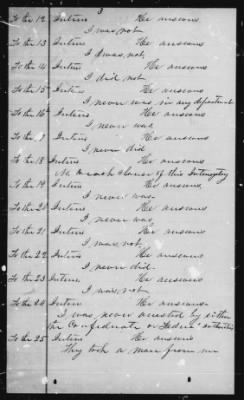 3
To the 12 Inters He answers
I was not
To the 13 Inters He answers
I was not,
To the 14 Inters He answers
I did not
To the 15 Inters He answers
I never was in any department
To the 16th Inters, He answers
I never was
To the 17 Inters He answers
I never did
To the 18 Inters He answers
of this Interrogatory
To the 19 Inters He answers,
I never was
To the 20 Inters He answers
I never was,
To the 21 Inters He answers
I was not
To the 22 Inters He answers
I never did.
To the 23 Inters, He answers
I was not
To the 24 Inters He answers.
I was never arrested by either
the Confederate or
To the 25 Inters He answers
They took a mare from me